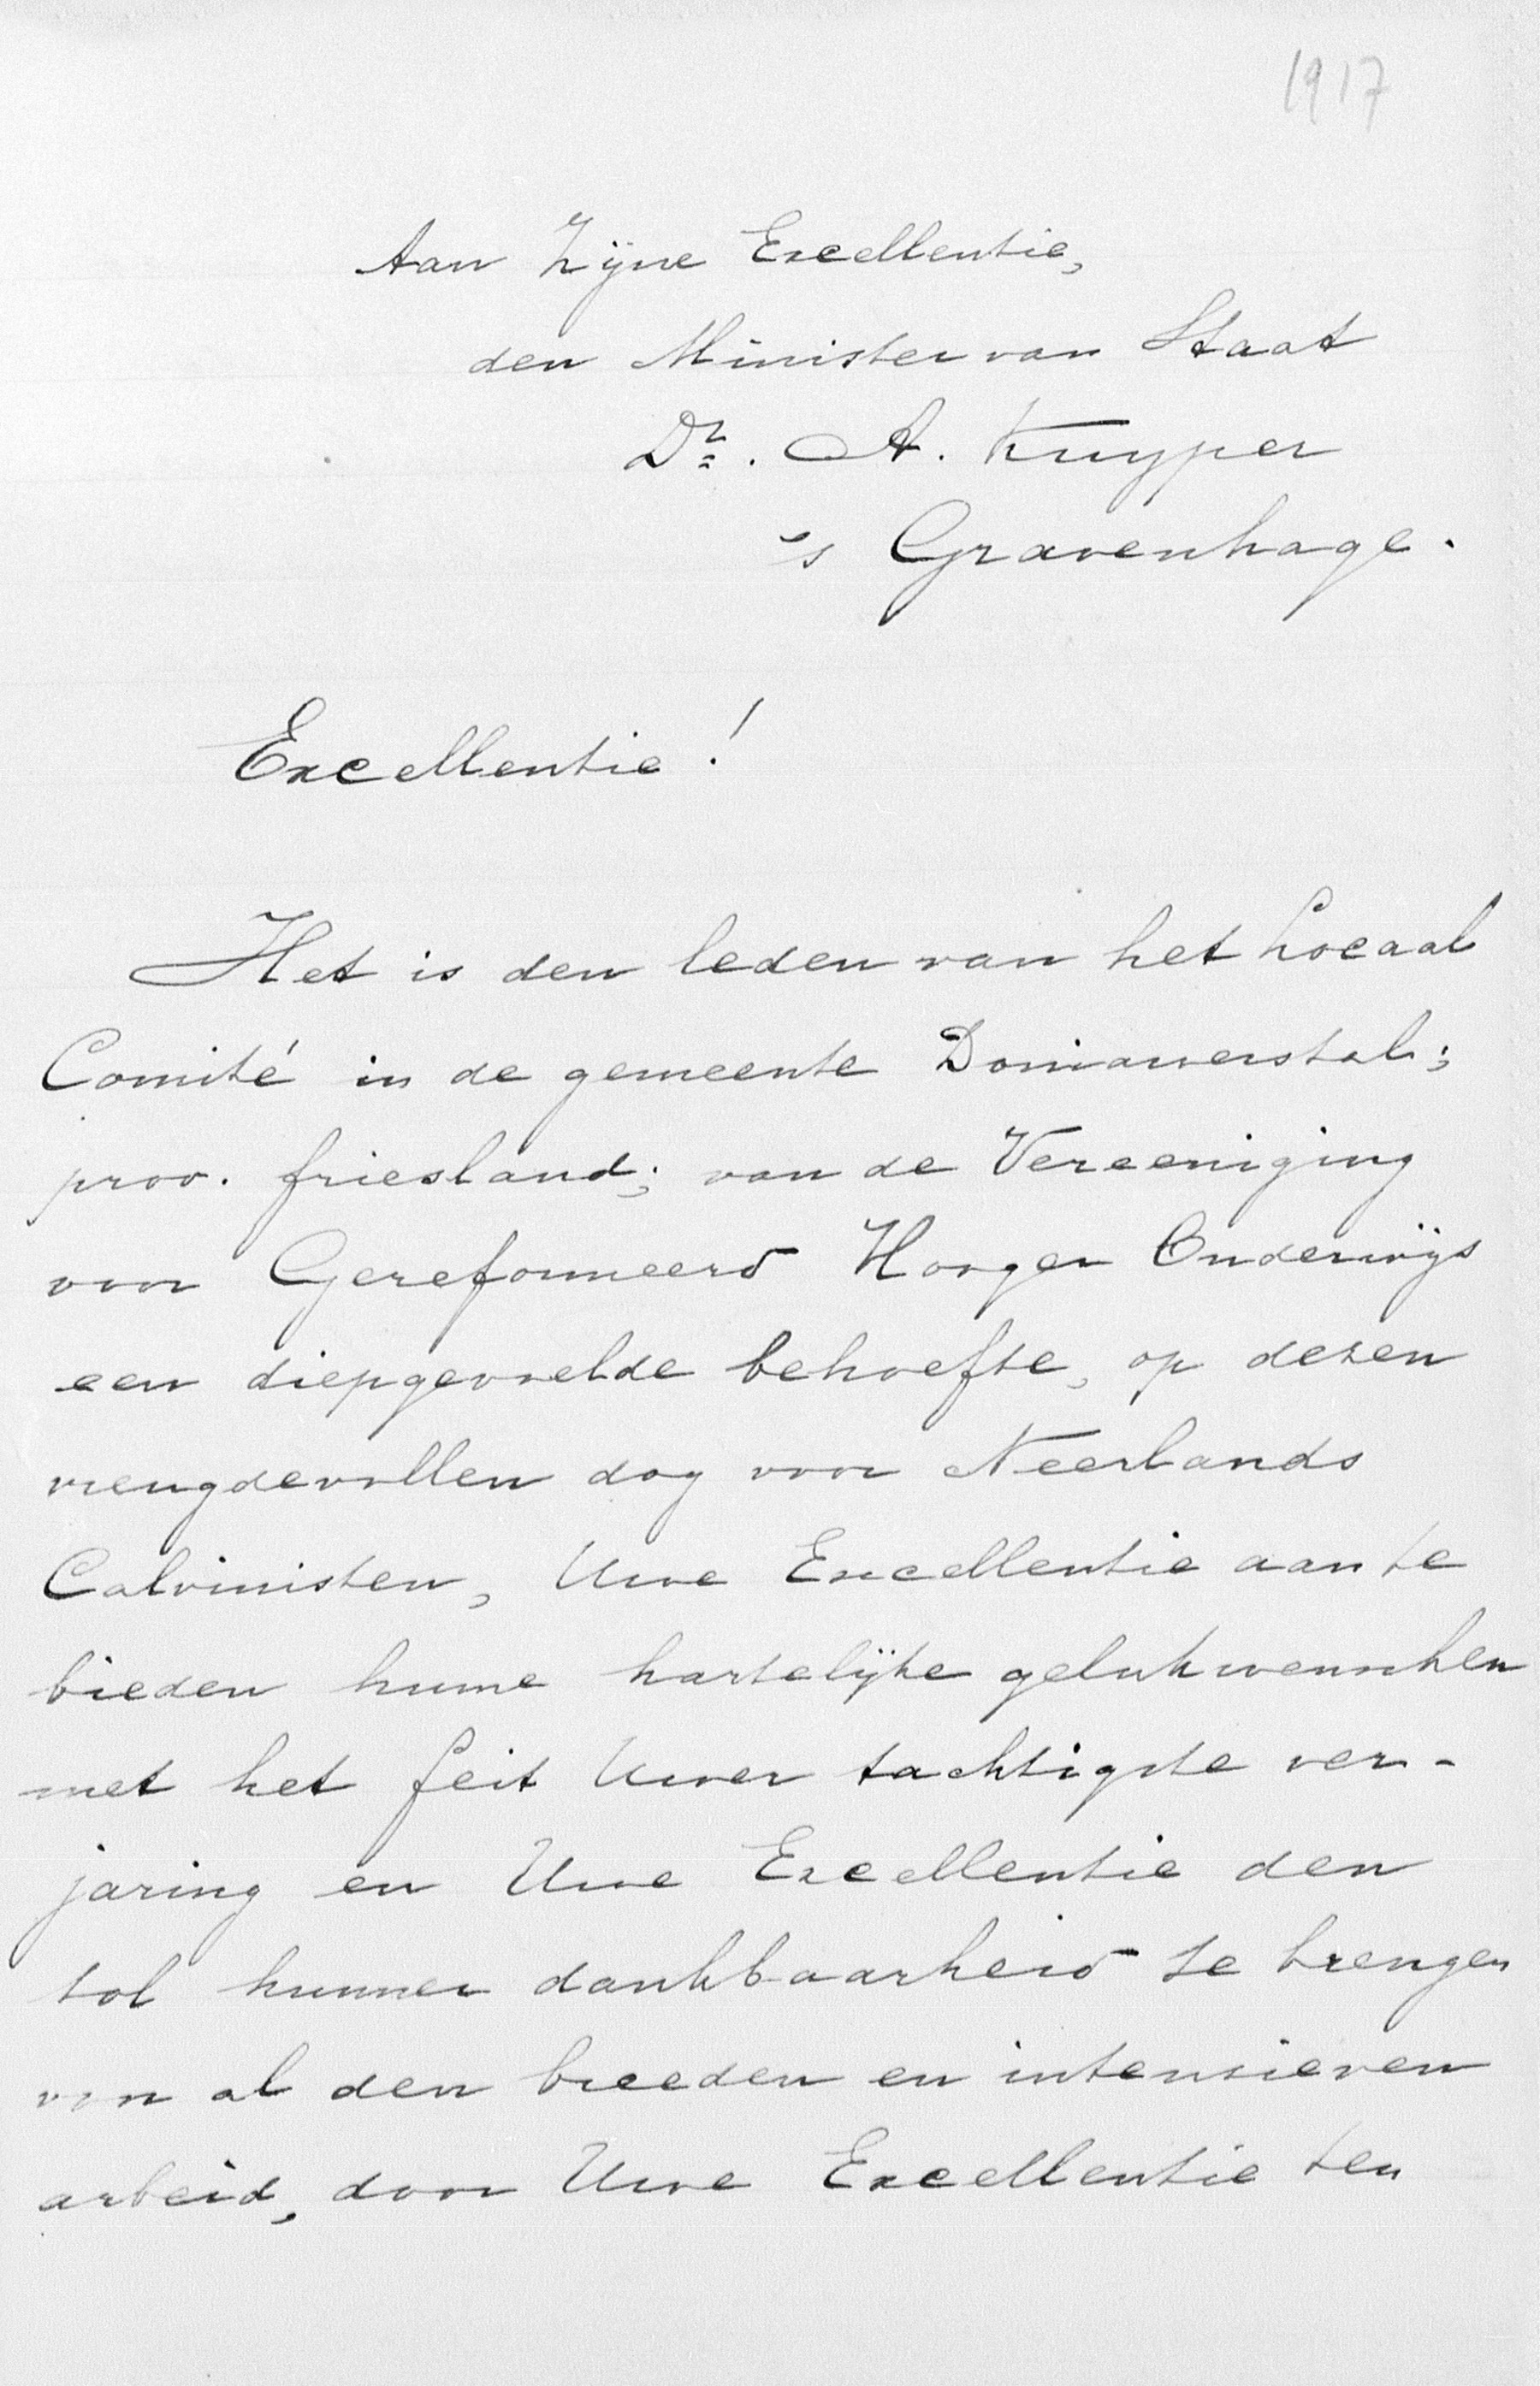 1917
Aan Zijne Excellentie,
den Minister van Staat
Dr. A. Kuyper
's Gravenhage.
Excellentie!
Het is den leden van het Locaal
Comité in de gemeente Doniawerstal;
prov. friesland; van de Vereeniging
voor Gereformeerd Hooger Onderwijs
een diepgevoelde behoefte, op dezen
vreugdevollen dag voor Neerlands
Calvinisten, Uwe Excellentie aan te
bieden hunne hartelijke gelukwenschen
met het feit Uwer tachtigste ver-
jaring en Uwe Excellentie den
tol hunner dankbaarheid te brengen
voor al den breeden en intensieven
arbeid, door Uwe Excellentie ten